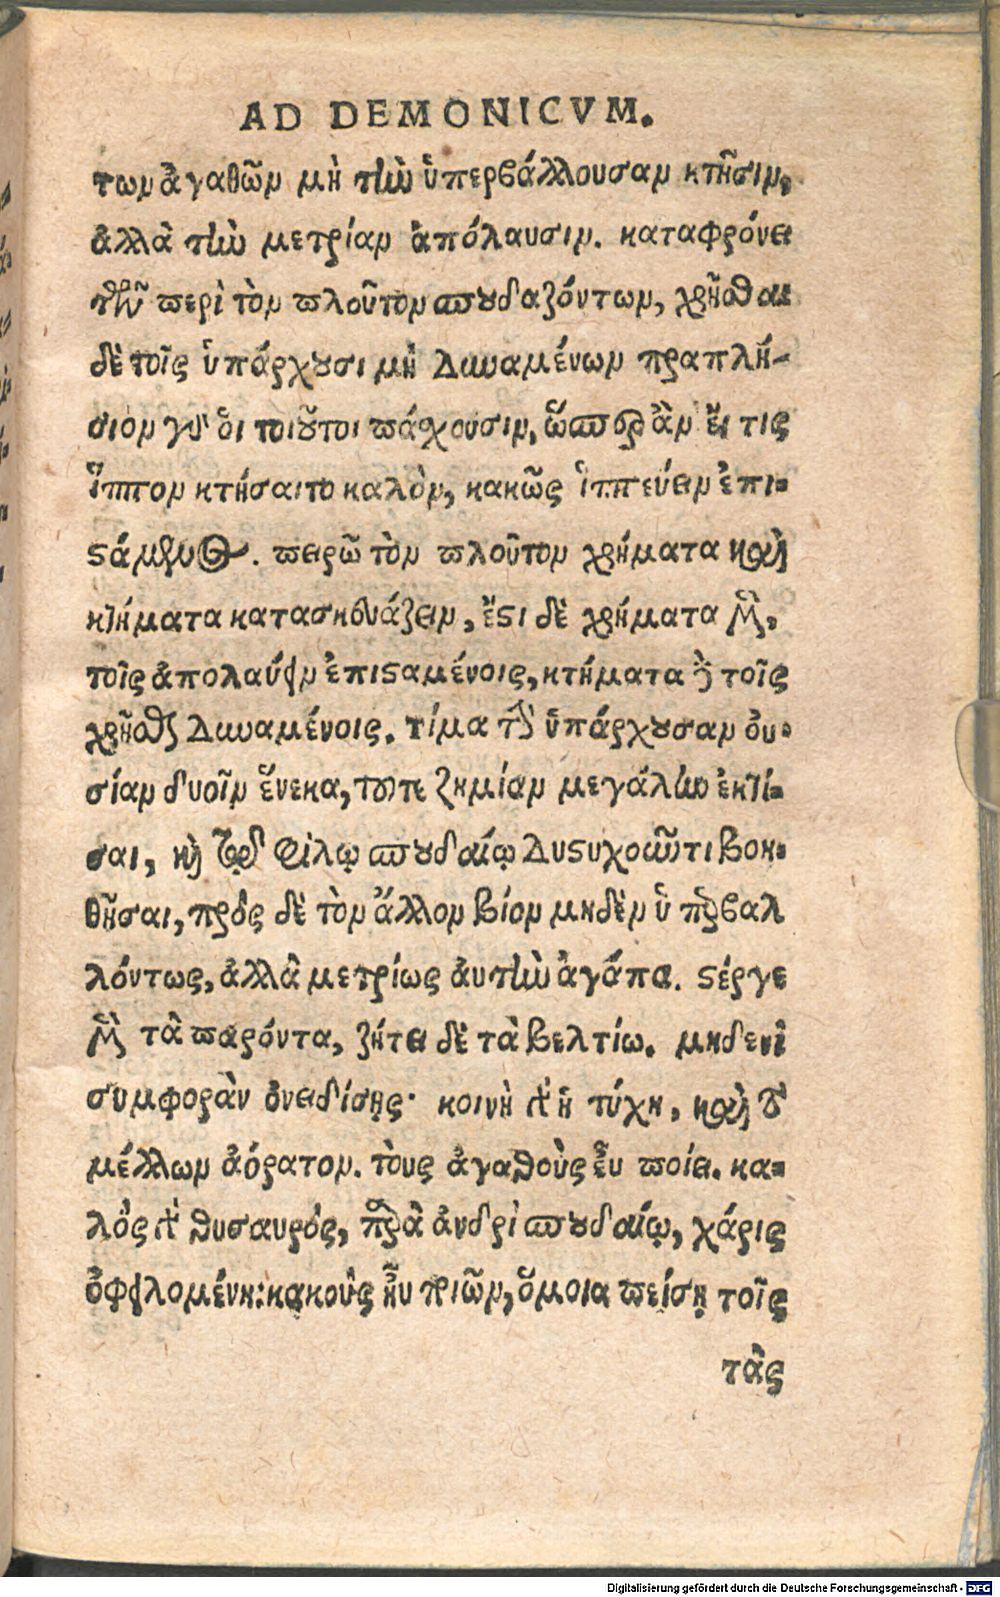 AD DEMONICVM.
των ἀγαθῶν μὴ τὴν ὑπερβάλλουσαν κτῆσιν,
ἀλλὰ τὴν μετρίαν ἀπόλαυσιν. καταφρόνει
τῶν περὶ τὸν πλοῦτον σπουδαζόντων, χρῆσθαι
δὲ τοῖς ὑπάρχουσι μὴ δυναμένων παραπλή-
σιον γὰρ ὁι τοιοῦτοι πάσχουσιν, ὥσπερ ἂν ἔι τις
ἵππον κτήσαιτο καλὸν, κακῶς ἱππεύειν ἐπι-
στάμενος. πειρῶ τὸν πλοῦτον χρήματα καὶ
κτήματα κατασκευάζειν, ἔστι δὲ χρήματα μὲν,
τοῖς ἀπολαύειν ἐπισταμένοις, κτήματα δὲ τοῖς
χρῆσθαι δυναμένοις. τίμα τὴν ὑπάρχουσαν ὀυ-
σίαν δυοῖν ἕνεκα, τοῦ τε ζημίαν μεγάλην ἐκτί-
σαι, καὶ τοῦ φίλῳ σπουδαίῳ δυστυχοῦντι βοη-
θῆσαι, πρὸς δὲ τὸν ἄλλον βίον μηδὲν ὑπερβαλ
λόντως, ἀλλὰ μετρίως ἀυτὴν ἀγάπα. στέργε
μὲν τὰ παρόντα, ζήτει δὲ τὰ βελτίω. μηδενὶ
συμφορὰν ὀνειδίσῃς· κοινὴ γὰρ ἡ τύχη, καὶ τὸ
μέλλων ἀόρατον. τοὺς ἀγαθοὺς ἐυ ποίει. κα-
λὸς γὰρ θυσαυρὸς, παρὰ ἀνδρὶ σπουδαίῳ, χάρις
ὀφειλομένη: κακοὺς ἐυ ποιῶν, ὅμοια πείσῃ τοῖς
τὰς
Digitalisierung gefördert durch die Deutsche Forschungsgemeinschaft - DFG